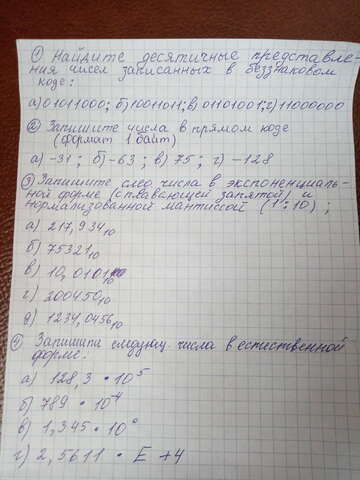 ① Найдите десятичные представле-
ния чисел записанных в беззнаковом
коде:
а) 01011000; б) 10011011; в) 01101001; г) 11000000
② Запишите числа в прямом коде
(формат 1 байт)
а) -31; б) -63; в) 75; г) -128
③ Запишите след. числа в экспоненциаль-
ной форме (с плавающей запятой) и
нормализованной мантиссой (1÷10);
а) 217,934₁₀
б) 75321₁₀
в) 10,0101₁₀
г) 200450₁₀
д) 1234,0456₁₀
④ Запишите следующ. числа в естественной
форме:
а) 128,3 • 10⁵
б) 789 • 10⁻⁴
в) 1,345 • 10⁰
г) 2,5611 • E +4